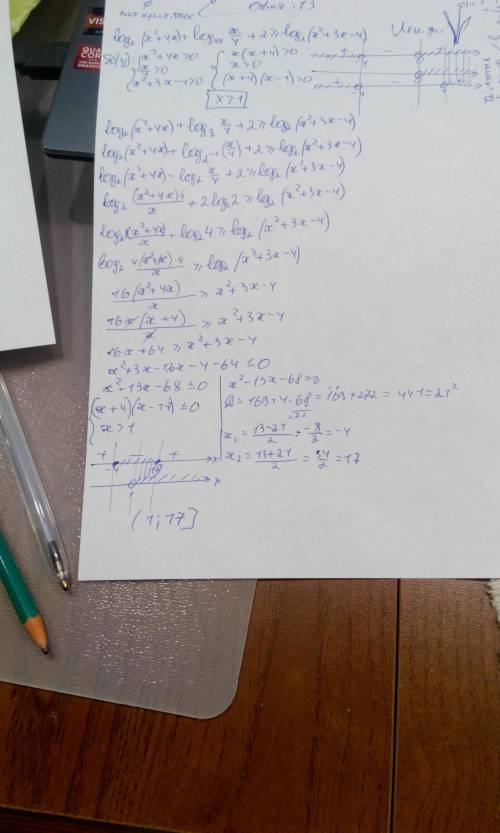 Ответ: 13
log₂(x²+4x)+log₀,₅ x/4 + 2 ≥ log₂(x²+3x-4)
{ x²+4x>0
x/4 >0
x²+3x-4>0
{ x(x+4)>0
x>0
(x+4)(x-1)>0
x>1
log₂(x²+4x)+ x/4 + 2 ≥ log₂(x²+3x-4)
log₂(x²+4x)+ log₂-1 (x/4) + 2 ≥ log₂(x²+3x-4)
log₂(x²+4x) - log₂ x/4 + 2 ≥ log₂(x²+3x-4)
log₂ (x²+4x)4/x + 2log₂2 ≥ log₂(x²+3x-4)
log₂ 4(x²+4x)/x + log₂4 ≥ log₂(x²+3x-4)
log₂ 4(x²+4x)·4/x ≥ log₂(x²+3x-4)
16(x²+4x)/x ≥ x²+3x-4
16x(x+4)/x ≥ x²+3x-4
16x+64 ≥ x²+3x-4
x²+3x-16x-4-64 ≤ 0
x²-13x-68 ≤ 0
{ (x+4)(x-17) ≤ 0
x>1
x²-13x-68=0
D = 169+4·68 = 169+272 = 441 = 21²
x₁ = 13-21/2 = -8/2 = -4
x₂ = 13+21/2 = 34/2 = 17
+ - +
-4 17 x
1 x
(1; 17]
VISI
QUAD
CORE